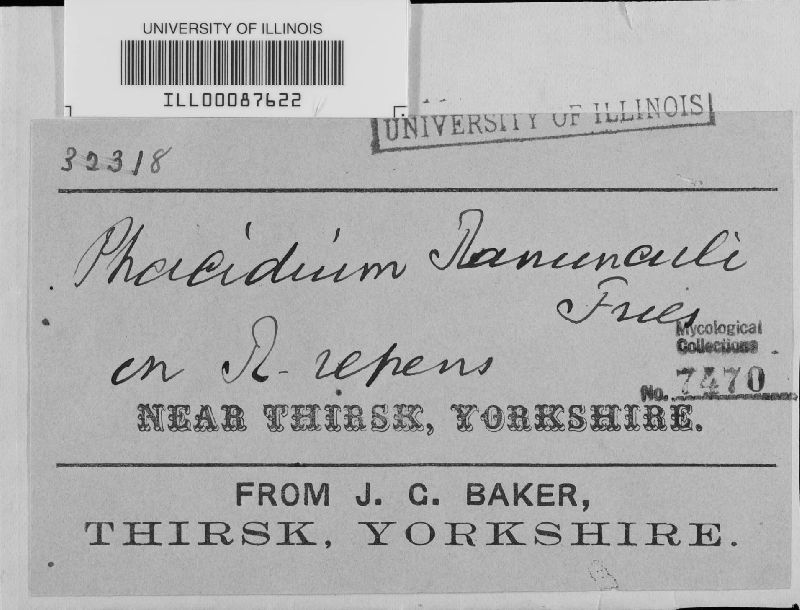 UNIVERSITY OF ILLINOIS
ILL00087622
UNIVERSITY OF ILLINOIS
32318
Phacidium Ranunculi
Fries
on R. repens
Mycological
Collections
No. 7470
NEAR THIRSK, YORKSHIRE.
FROM J. G. BAKER,
THIRSK, YORKSHIRE.